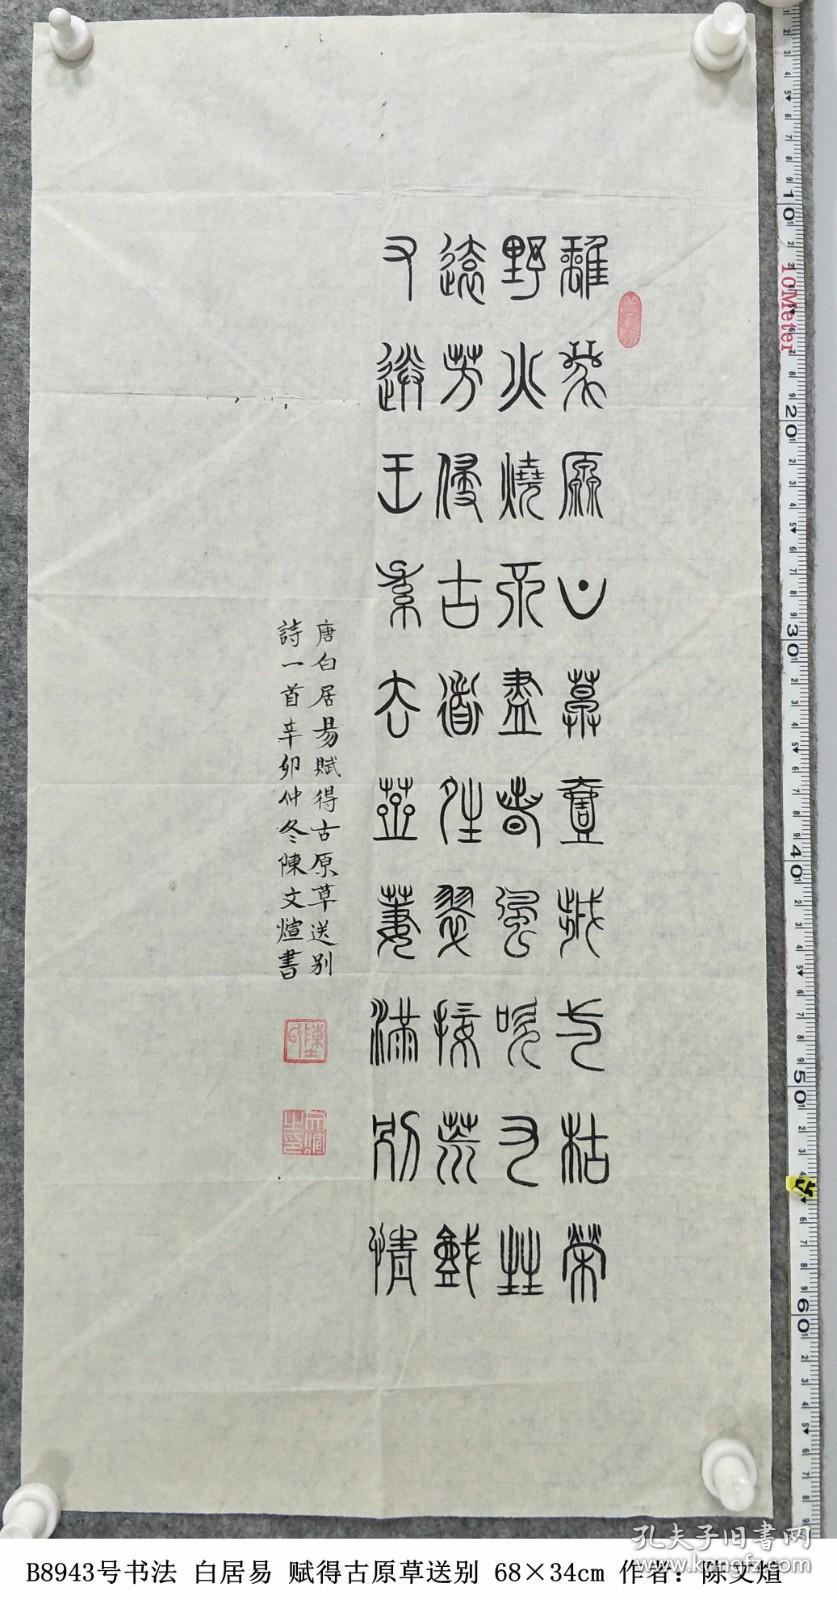 離離原上草壹歲一枯榮
野火燒不盡春風吹又生
遠芳侵古道晴翠接荒城
又送王孫去萋萋滿別情
唐白居易賦得古原草送别
詩一首辛卯仲冬陳文煊書
10Meter
10
20
30
40
50
60
孔夫子旧书网
www.kongfz.com
B8943号书法 白居易 赋得古原草送别 68×34cm 作者：陈文煊